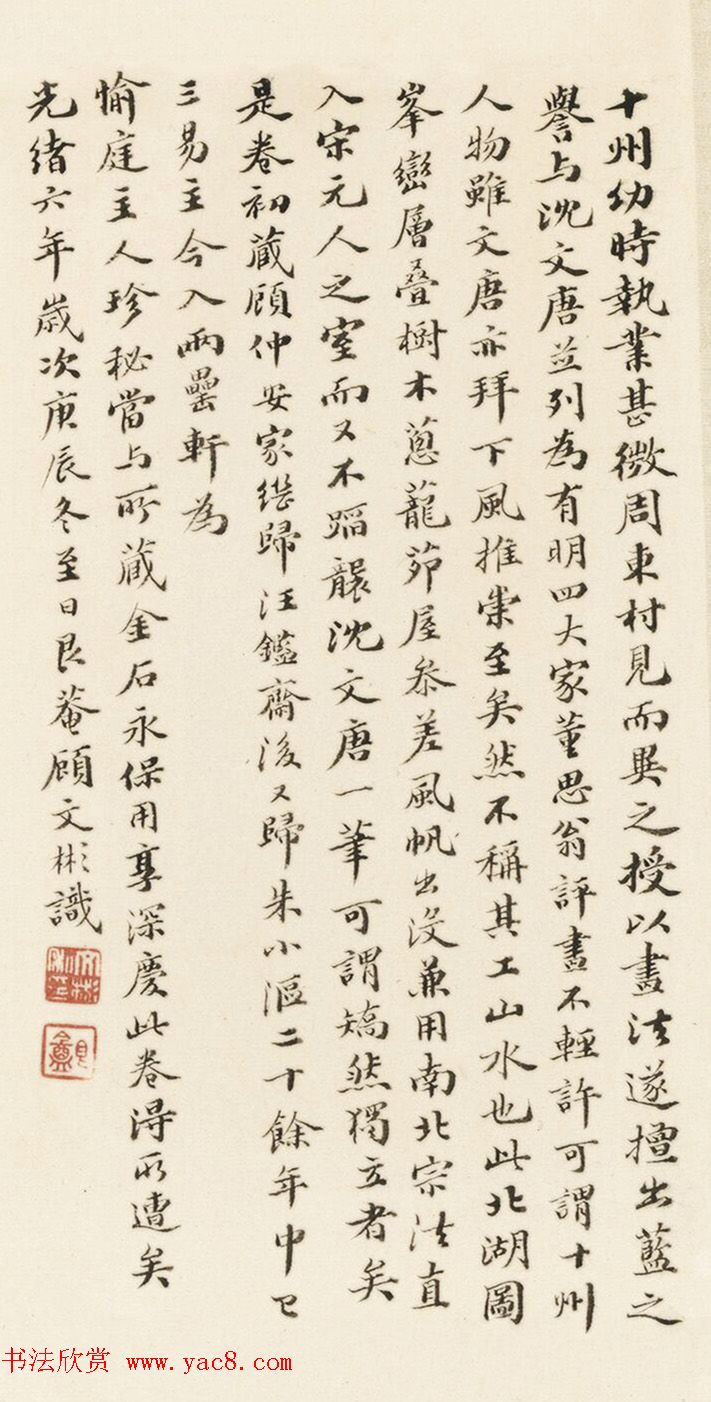 十州幼時執業甚微周東村見而異之授以畫法遂擅出藍之
譽与沈文唐並列為有明四大家董思翁評畫不輕許可謂十州
人物雖文唐亦拜下風推崇至矣然不稱其工山水也此北湖圖
峯巒層疊樹木蔥蘢茆屋叅差風帆出沒兼用南北宗法直
入宋元人之室而又不蹈襲沈文唐一筆可謂矯然獨立者矣
是卷初藏顧仲安家继歸汪鑑齋後又歸朱小漚二十餘年中已
三易主今入兩罍軒為
愉庭主人珍秘當与所藏金石永保用享深慶此卷得所遭矣
光緒六年歲次庚辰冬至日艮菴顧文彬識
書法欣赏 www.yac8.com